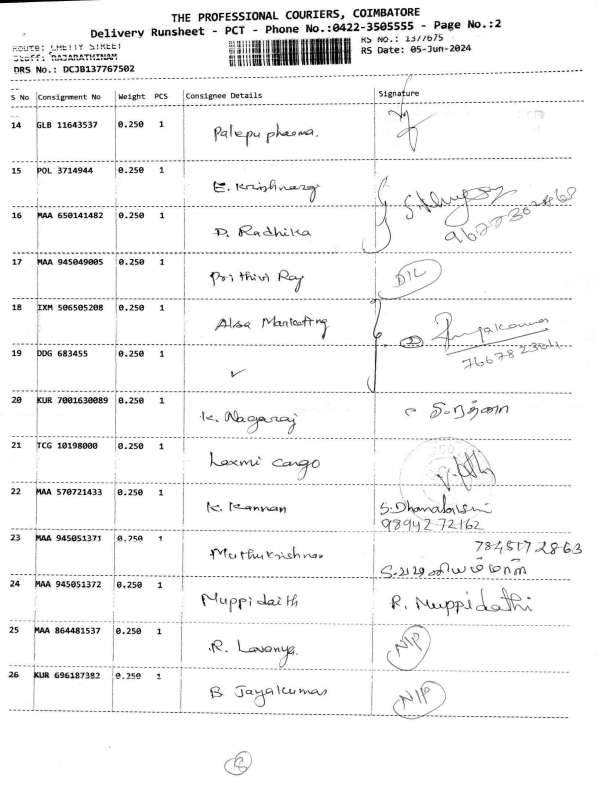 THE PROFESSIONAL COURIERS, COIMBATORE
Delivery Runsheet - PCT - Phone No.:0422-3505555 - Page No.:2
Route: CHETTY STREET
RS No.: 1377675
Staff: RAJARATHINAM
RS Date: 05-Jun-2024
DRS No.: DCJB137767502
S No Consignment No Weight PCS Consignee Details Signature
14 GLB 11643537 0.250 1 Palepu pheema.
15 POL 3714944 0.250 1 E. Krishnaraj
16 MAA 650141482 0.250 1 D. Radhika
17 MAA 945049005 0.250 1 Prithivi Raj D/L
18 IXM 506505208 0.250 1 Alsa Marketing
766782304
19 DDG 683455 0.250 1 ✓
20 KUR 7001630089 0.250 1 K. Nagaraj
21 TCG 10198000 0.250 1 Laxmi cargo
22 MAA 570721433 0.250 1 K. Kannan
98942 72162
23 MAA 945051371 0.250 1 Muthukrishnan 784517 2863
24 MAA 945051372 0.250 1 Muppidaith R. Muppidathi
25 MAA 864481537 0.250 1 R. Lavanya N/P
26 KUR 696187382 0.250 1 B Jayakumar N/P